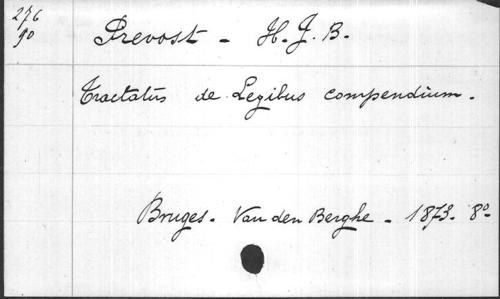 276
90
Prevost - H. J. B.
Tractatus de Legibus compendium.
Bruges. Van den Berghe - 1873. 8º